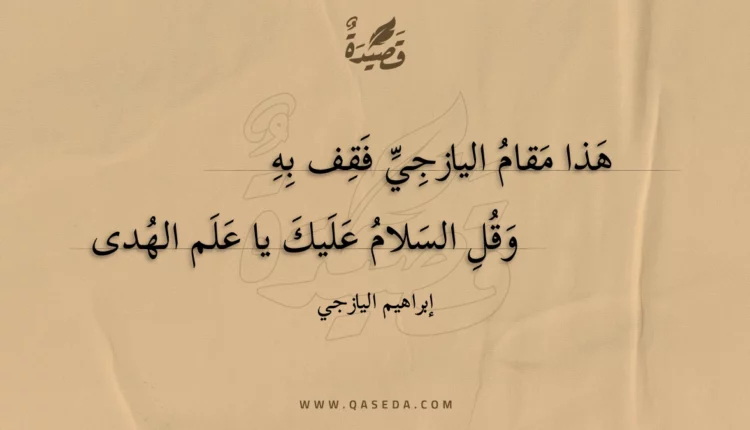 قَصِيدَةٌ
هَذا مَقامُ اليازجِيِّ فَقِف بِهِ
وَقُلِ السَلامُ عَلَيكَ يا عَلَم الهُدى
إبراهيم اليازجي
WWW.QASEDA.COM